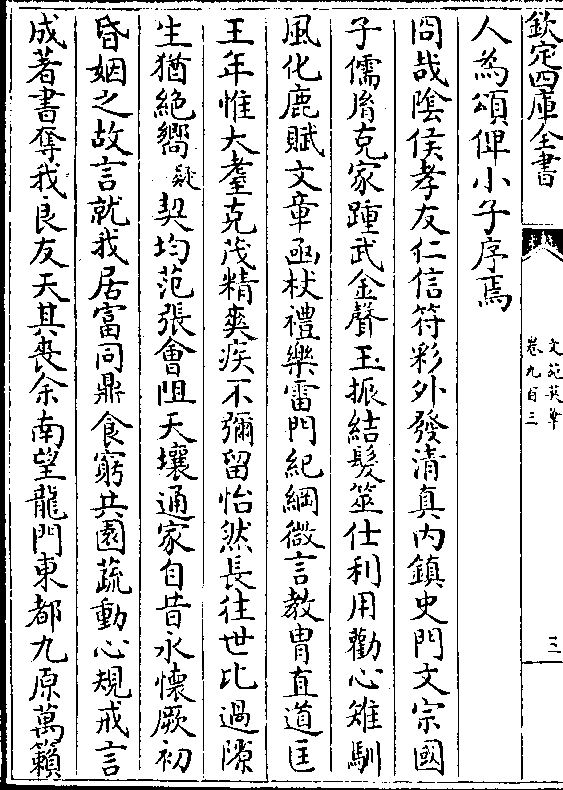 欽定四庫全書
文苑英華
卷九百三
三
人為頌俾小子序焉
冏哉陰侯孝友仁信符彩外發清真内鎮史門文宗國
子儒胄克家踵武金聲玉振結髮筮仕利用勸心雉馴
風化鹿賦文章凾杖禮樂雷門紀綱微言教胄直道匡
王年惟大耋克茂精爽疾不彌留怡然長往世比過隙
生猶絶嚮疑契均范張會阻天壤通家自昔永懷厥初
昏姻之故言就我居富同鼎食窮共園蔬動心規戒言
成著書奪我良友天其喪余南望龍門東都九原萬籟